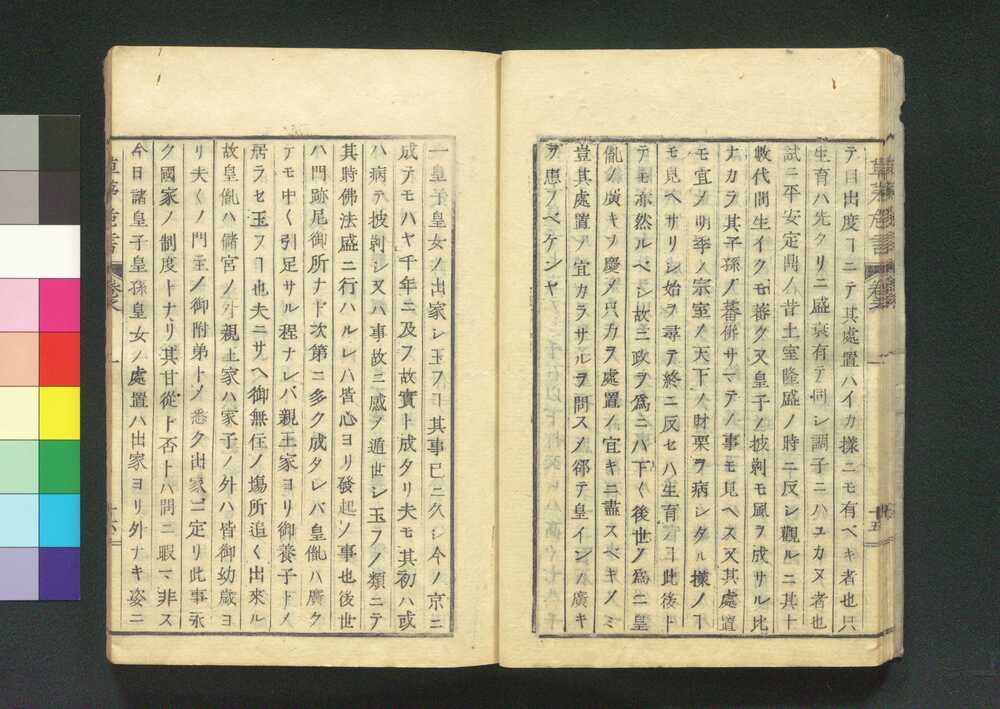 テ目出度ヿニテ其處置ハイカ樣ニモ有ベキ者也只
生育ハ先クリニ盛衰有テ同シ調子ニハユカヌ者也
試ニ平安定鼎ノ昔土室隆盛ノ時ニ反シ觀ルニ其十
數代間生イクモ蕃ク又皇子ノ披剃モ風ヲ成サル比
ナカラ其子孫ノ蕃併サマテノ事モ見ヘス又其處置
モ宜ノ明季ノ宗室ノ天下ノ財栗ヲ病シタル樣ノヿ
モ見ヘサリシ始ヲ尋テ終ニ反セハ生育ノヿ此後ト
テモ亦然ルベシ故ニ政ヲ爲ニハ下〱後世ノ爲ニ皇
胤ノ廣キヲ慶メ只力ヲ處置ノ宜キニ盡スベキノミ
豈其處置ノ宜カラサルヲ問スメ郤テ皇インノ廣キ
ヲ患フベケンヤ
草茅危言
十五
一皇子皇女ノ出家シ玉フヿ其事已ニ久シ今ノ京ニ
成テモハヤ千年ニ及フ故實ト成タリ夫モ其初ハ或
ハ病テ披剃シ又ハ事故ニ感ヲ遁世シ玉フノ類ニテ
其時佛法盛ニ行ハルレハ皆心ヨリ發起ソ事也後世
ハ門跡尾御所ナド次第ニ多ク成タレバ皇胤ハ廣ク
テモ中〱引足サル程ナレバ親王家ヨリ御養子トメ
居ラセ玉フヿ也夫ニサヘ御無住ノ塲所追〱出來ル
故皇胤ハ儲宮ノ外親王家ハ家子ノ外ハ皆御幼歳ヨ
リ夫〱ノ門主ノ御附弟トメ悉ク出家ニ定リ此事永
ク國家ノ制度トナリ其甘從ト否トハ問ニ暇マ非ス
今日諸皇子皇孫皇女ノ處置ハ出家ヨリ外ナキ姿ニ
草茅危言
十六